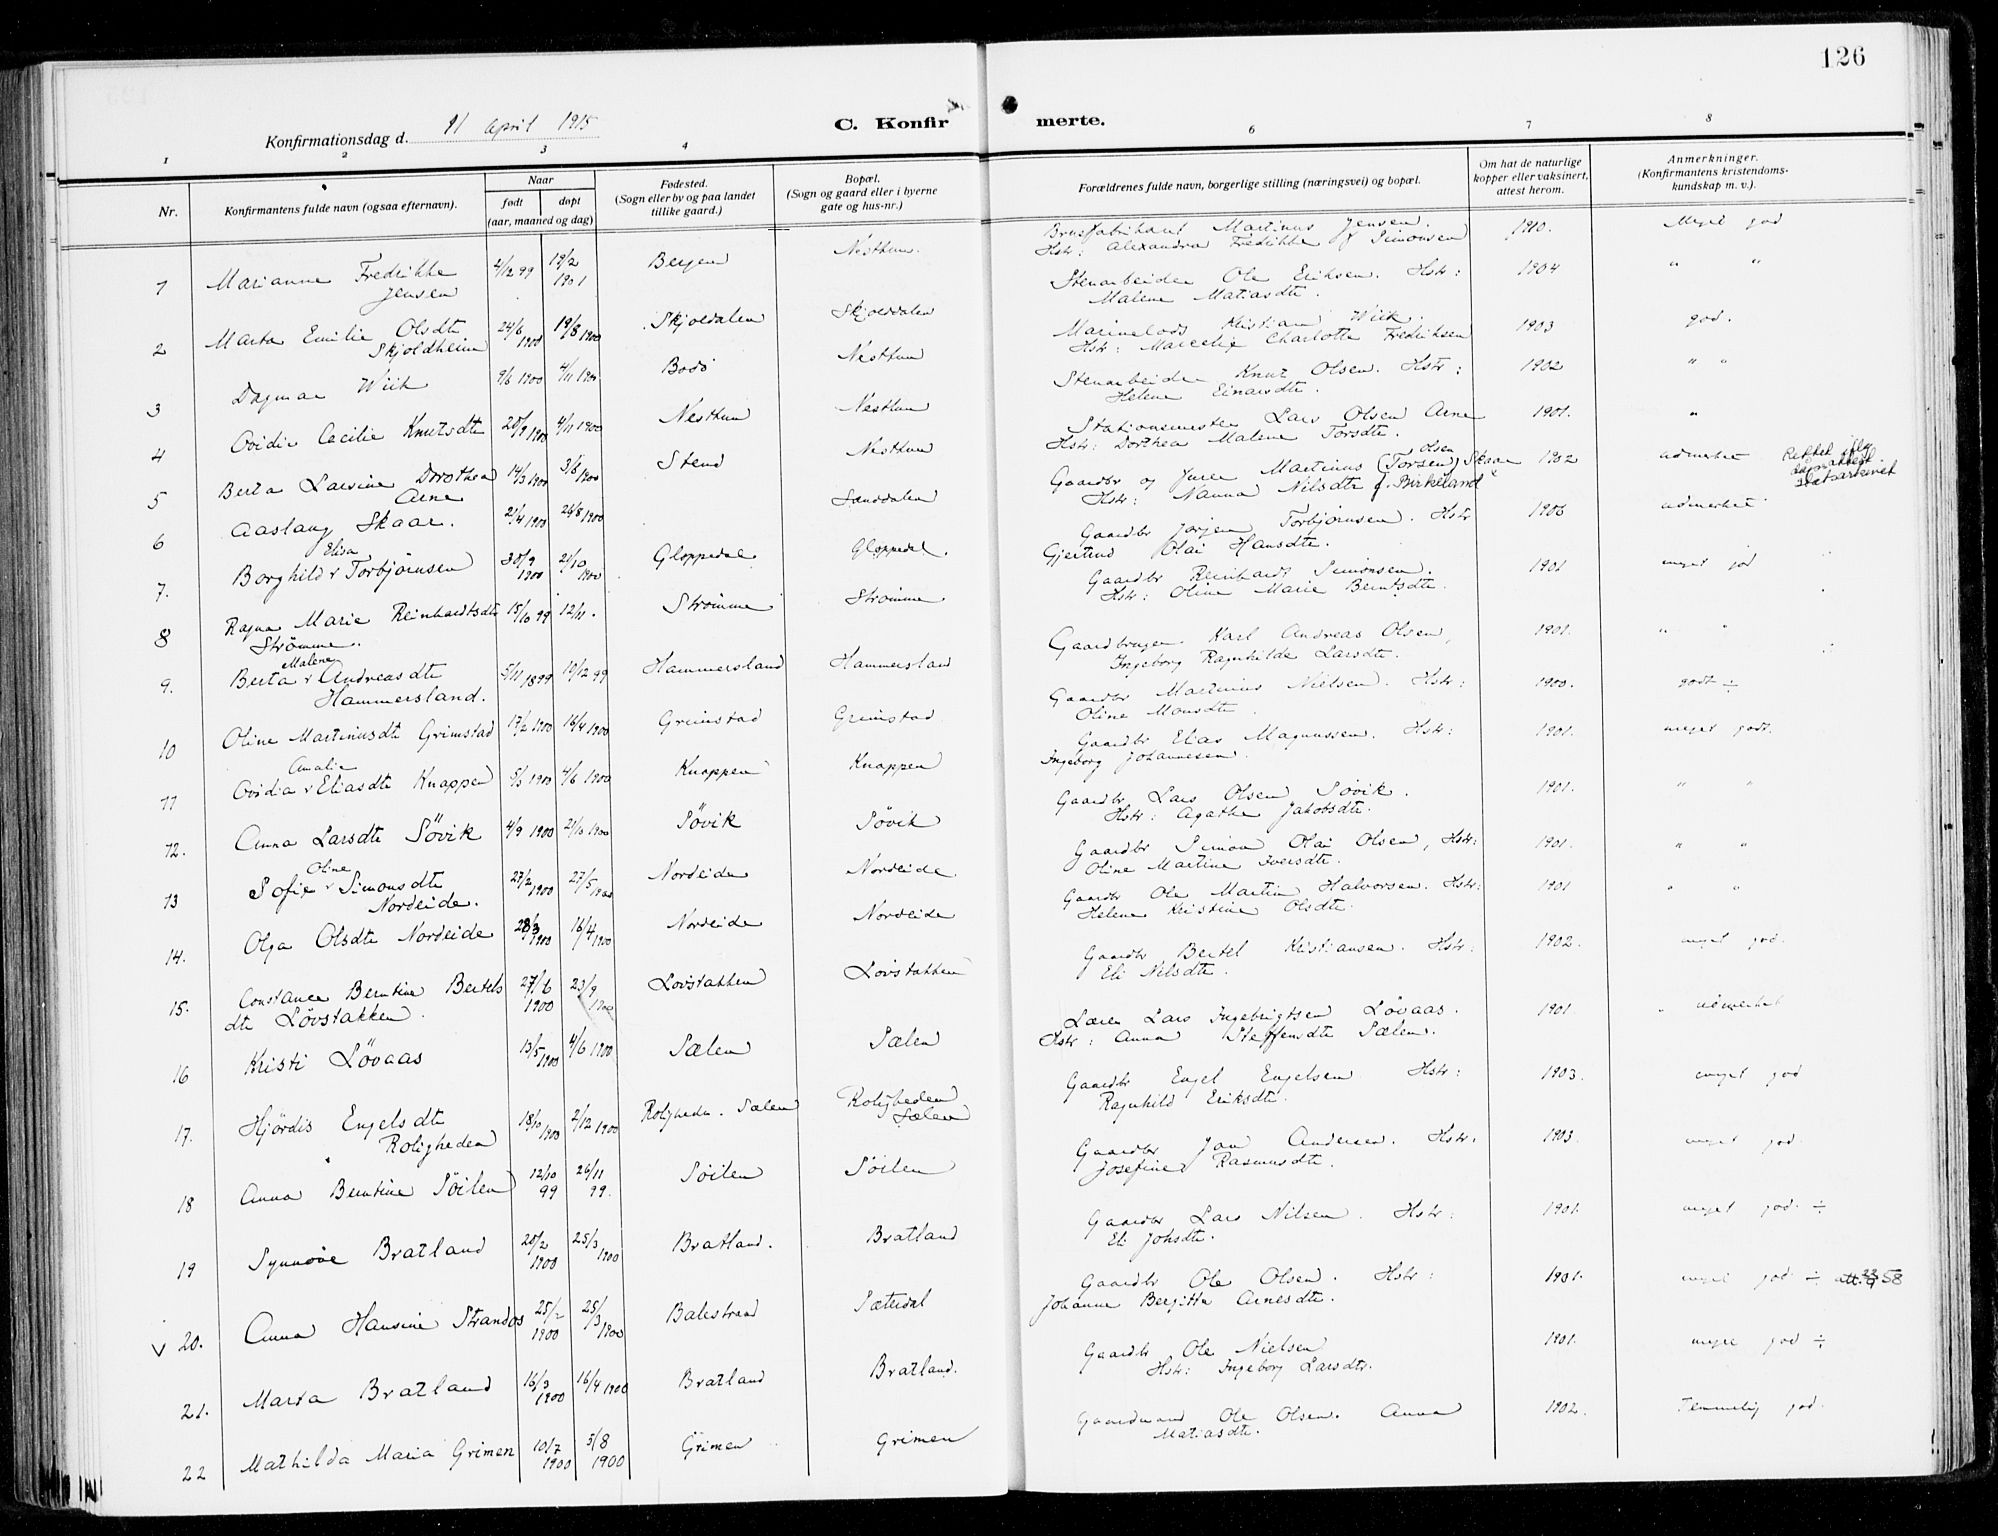 126
Konfirmationsdag d. 11 April 1915
C. Konfirmerte.
1 2 3 4 6 7 8
Nr.
Konfirmantens fulde navn (ogsaa efternavn).
Naar
født døpt
(aar, maaned og dag)
Fødested.
(Sogn eller by og paa landet
tillike gaard.)
Bopæl.
(Sogn og gaard eller i byerne
gate og hus-nr.)
Forældrenes fulde navn, borgerlige stilling (næringsvei) og bopæl.
Om hat de naturlige
kopper eller vaksinert,
attest herom.
Anmerkninger.
(Konfirmantens kristendoms-
kundskap m. v.).
1 Marianne Fredrikke 2/12 99 19/2 Bergen Nesttun. Brusfabrikant Martinus Jensen. 1910. Meget god
Jensen 1901 Hstr: Alexandra Fredikke f Simonsen
2 Marta Emilie Olsdt 24/6 19/8 1900 Skjoldalen Skjolddalen Stenarbeider Ole Eriksen. Hstr: 1904 " "
Skjoldheim 1900 Malene Matiasdt.
3 Dagmar Wiik 9/6 1900 4/11 Bodö Nesttun Kristian Wiik. 1903 god.
Hstr: Charlotte Fredriksen
4 Ovidia Cecilie Knutsdt 4/11 1900 Nesttun Nesttun Stenarbeider Knut Olsen. Hstr: 1902 " "
Helene Einarsdt.
5 Berta Larsine Dorothea 14/3 1900 3/6 1900 Stend Nesttun Stationsmester Lars Olsen Arne 1901. "
Arne Hstr: Dorthea Malene Torsdt.
6 Aaslaug Skaar. 21/4 1900 26/8 1900 Sanddalen Gaardbr og Martinus (Torsen) Olsen Skaar 1902 udmerket
Hstr: Nanna Nilsdt f. Birkeland
7. Borghild Elisa Torbjørnsen 30/9 1900 21/10 1900 Gloppedal Gloppedal. Gaardbr Jørgen Torbjørnsen. Hstr 1906 udmerket.
Gjertrud Olai Hansdt.
8 Ragna Marie Reinhardtsdt 15/10 99 12/11. Strømme Strømme Gaardbr Reinhardt Simonsen. 1901 meget god
Strömme. Hstr: Oline Marie Berntsdt.
9. Berta Malene Andreasdt 5/11 1899 19/12 99 Hammersland Hammersland Gaardbruger Karl Andreas Olsen, 1901. " "
Hammersland. Ingeborg Ragnhilde Larsdt.
10 Oline Martinusdt Grimstad 17/2 1900 16/4 1900 Grimstad Grimstad Gaardbr Martinus Nielsen. Hstr: 1900. godt ÷
Oline Monsdt
11 Ovidia Amalie Eliasdt Knappen 4/6 1900 Knappen Knappen Gaardbr Elias Magnussen. Hstr: 1901. meget godt.
Ingeborg Johannesen.
12. Anna Larsdt Søvik 4/9 1900 21/10 1900 Søvik Søvik Gaardbr Lars Olsen Søvik. 1901. " "
Hstr: Agathe Jakobsdt.
13 Sofie Oline Simonsdt 27/2 1900 27/5 1900 Nordeide Nordeide Gaardbr Simon Olai Olsen, Hstr: 1901. " "
Nordeide. Oline Martine Iversdt.
14. Olga Olsdt Nordeide 1900 16/4 1900 Nordeide Nordeide Gaardbr Ole Martin Halvorsen. Hstr: 1901 " "
Helene Kristine Olsdt.
15. Constance Berntine Bertels 27/6 1900 23/9 1900 Lovstakken Lovstakken Gaardbr Bertel Kristiansen. Hstr: 1902. meget god.
dt Lövstakken. Eli Nilsdt.
16 Kristi Lövaas 13/5 1900 4/6 1900 Sælen Sælen Lærer Lars Ingebrigtsen Løvaas. 1901. udmerket
Hstr: Anna Steffensdt Sælen.
17. Hjördis Engelsdt 18/10 1900 2/12 1900 Roligheden. Sælen Roligheden Gaardbr Engel Engelsen. Hstr: 1903. meget god
Roligheden Sælen Ragnhild Eriksdt.
18 Anna Berntine Söilen 12/10 99 26/11 99. Söilen Söilen Gaardbr Jon Andersen. Hstr: 1903. meget god.
Josefine Rasmusdt.
19 Synnöve Bratland 20/2 1900 25/3 1900 Bratland. Bratland Gaardbr Lars Nilsen. Hstr: 1901. meget god. ÷
Eli Johsdt.
V 20. Anna Hansine Strandos 25/2 1900 25/3 1900 Balestrand Sæterdal Gaardbr Ole Olsen. Hstr: 1901. meget god ÷ att. 22/9 58
Johanne Bergitta Arnesdt.
21. Marta Bratland 16/3 1900 16/4 1900 Bratland Bratland. Gaardbr Ole Nielsen 1901. meget god ÷
Hstr: Ingeborg Larsdtr.
22 Mathilda Maria Grimen 10/7 1900 5/8 1900 Grimen Grimen Gaardmand Ole Olsen. Anna 1902. Temmelig god.
Matiasdt.